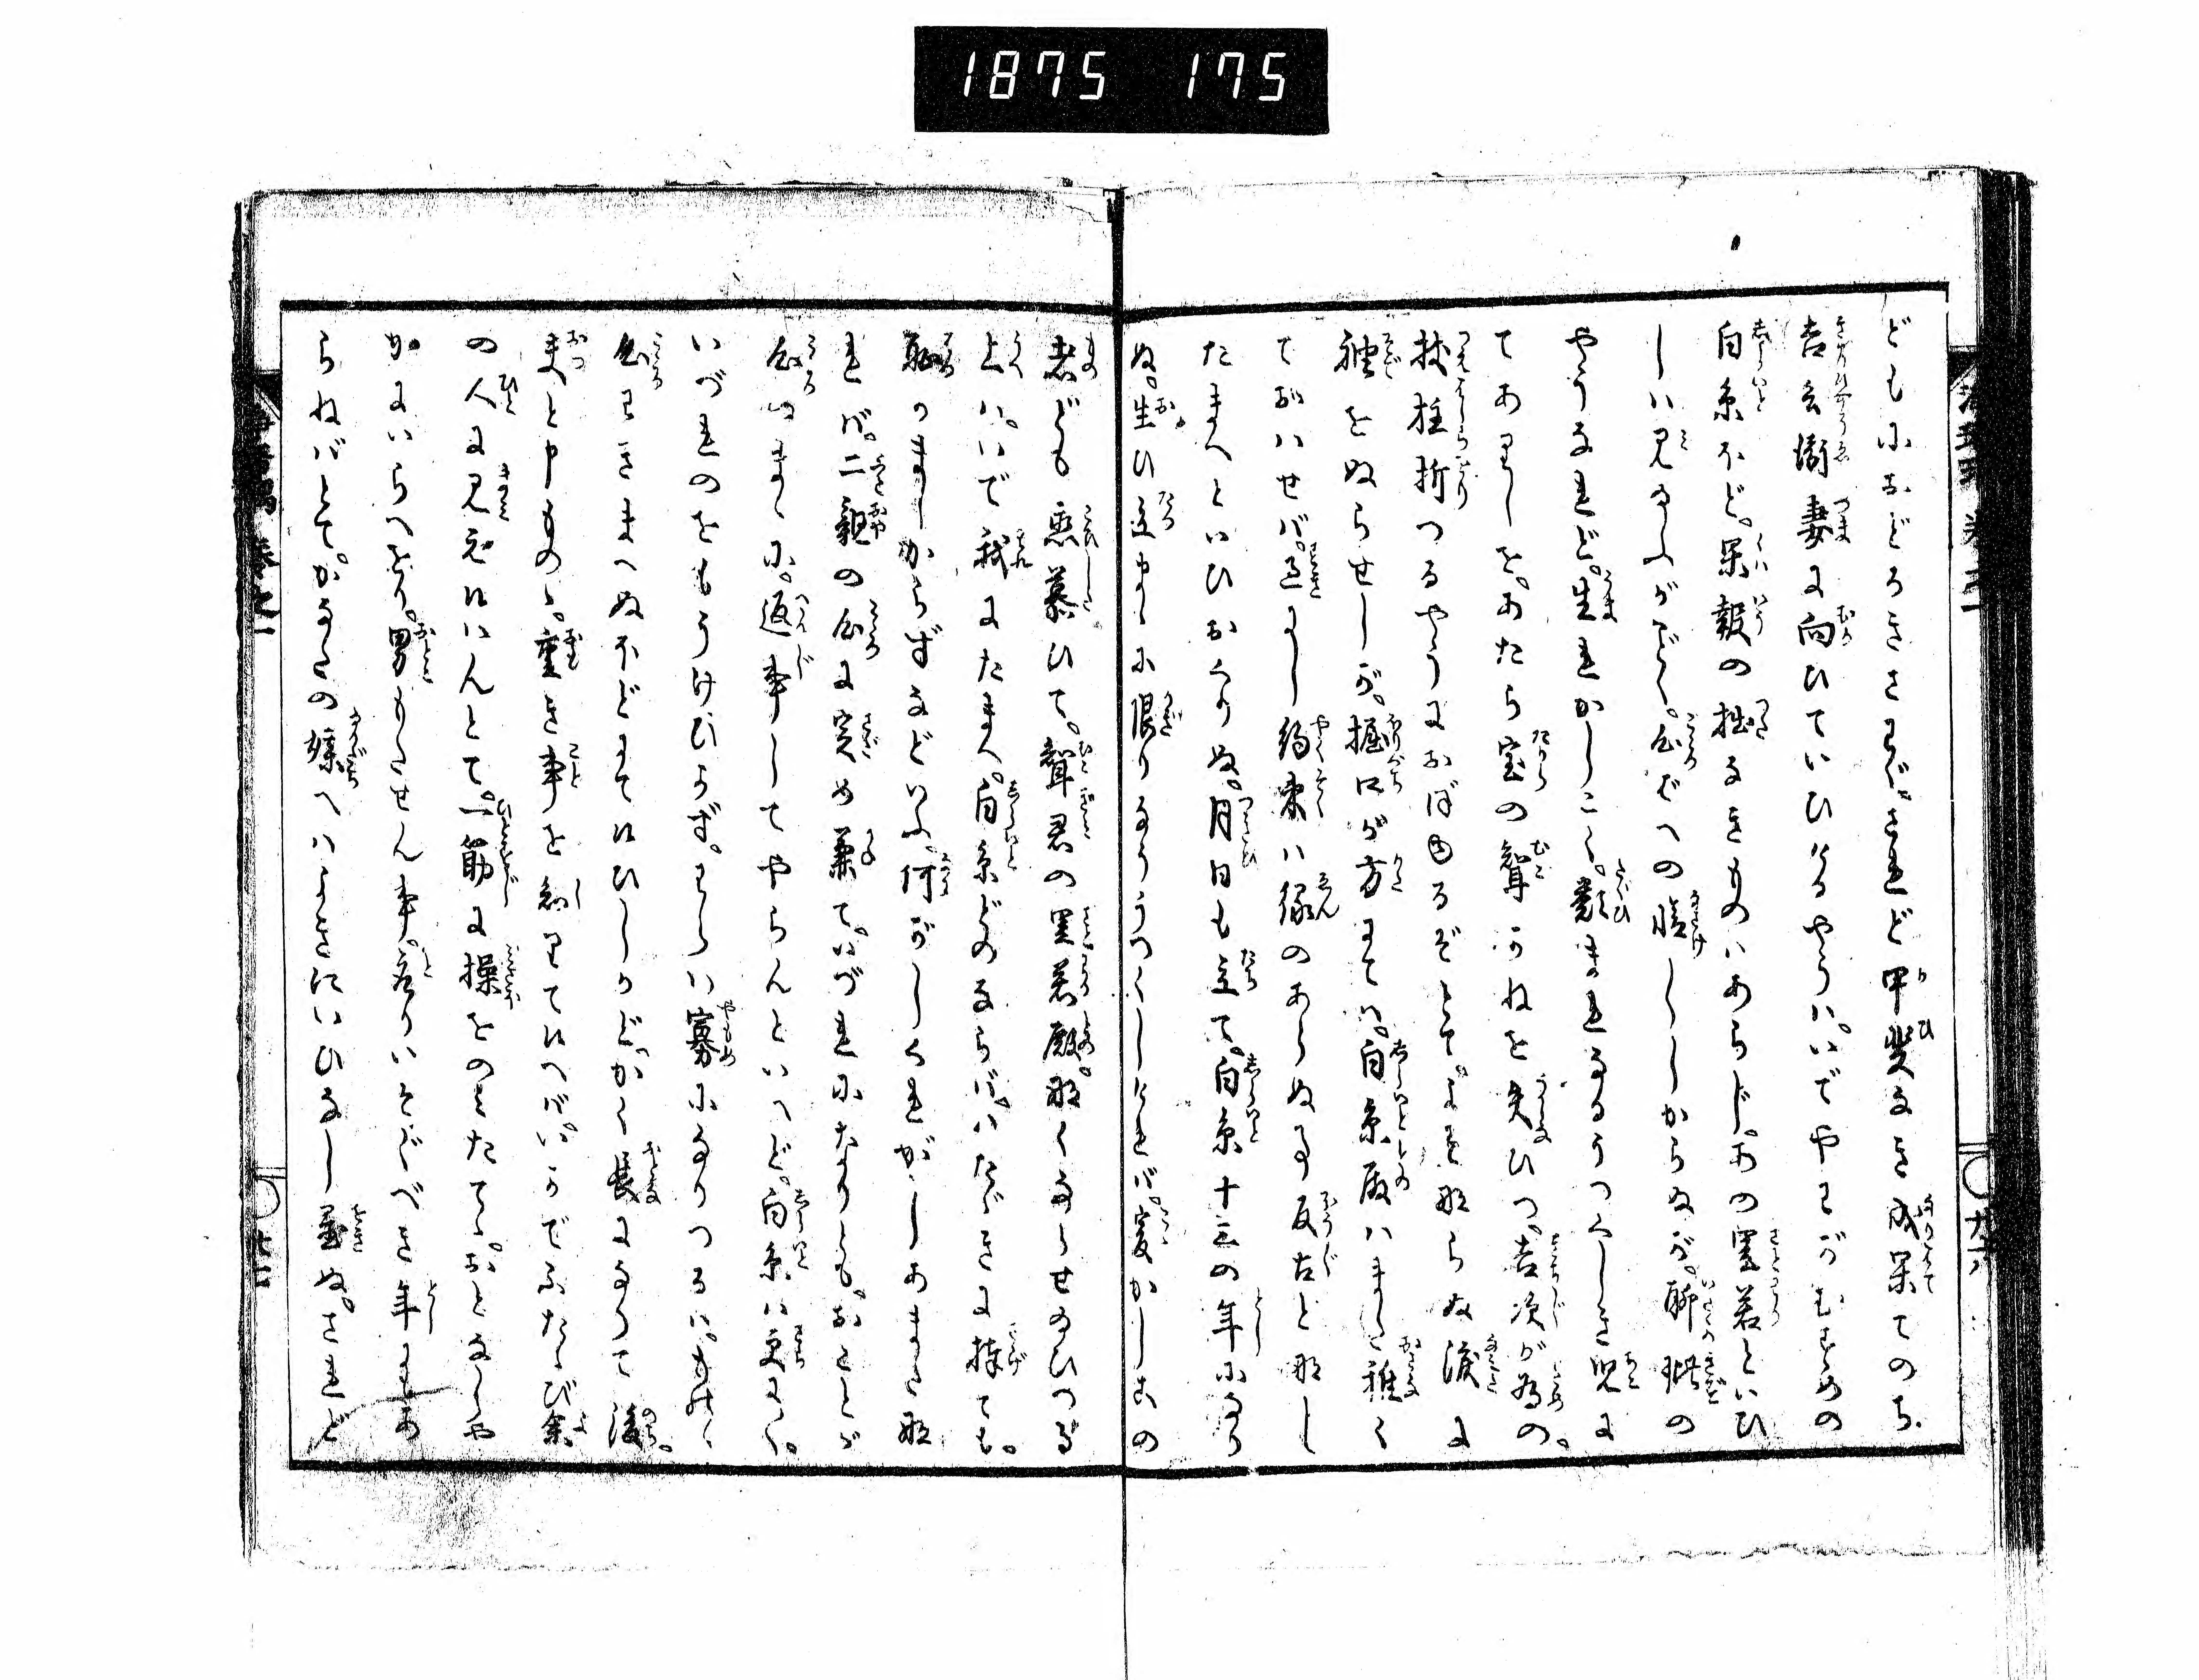 1875 175
どもにおどろきさわぐ。されど甲斐なき成果てのち
吉兵衛妻に向ひていひけるやうは。いでやわがむすめの
白糸ほど。果報の拙なきものはあらじ。あの里若といひ
しは見るふがごとく。心ばへの情しゝしからぬが。聊瑕の
やうなれど。生れかしこく。類まれなるうつくしき児に
てありしを。あたら宝の聟がねを失ひつ。吉次が為の。
杖柱折つるやうにおぼゆるぞとて。よそ物ならぬ涙に
袖をぬらせしが。堀口が方にては。白糸殿はまだ稚く
ておはせば。過にし約束は縁のあらぬ事反古と那し
たまへといひおくりぬ。月日も立て。白糸十三の年になり
ぬ。生ひ立まゝに限りなううつくしければ。爰かしこの
者ども恋慕ひて。聟君の里若殿那くならせ給ひつる
上は。いで我にたまへ。白糸どのならば。いたゞきに捧ても。
耻かましからずなどいふ。何がしくれがしあまた那
れば。二親の心に定め兼て。いづれになりとも。おことが
心のまゝに。返事してやらんといへど。白糸は更によく。
いづれのをもうけひかず。わらは寡になりつるは。ものゝ
心わきまへぬほどにて侍ひしかど。かく長になりて後。
夫と申ものゝ。重き事を知りて侍へば。いかでふたゝび余
の人に見え侍はんとて。一筋に操をのみたてゝ。おとなしや
かにいらへをり。男もたせん事。あまりいそぐべき年にもあ
らねばとて。かなたの媒へはよきにいひなし置ぬ。されど